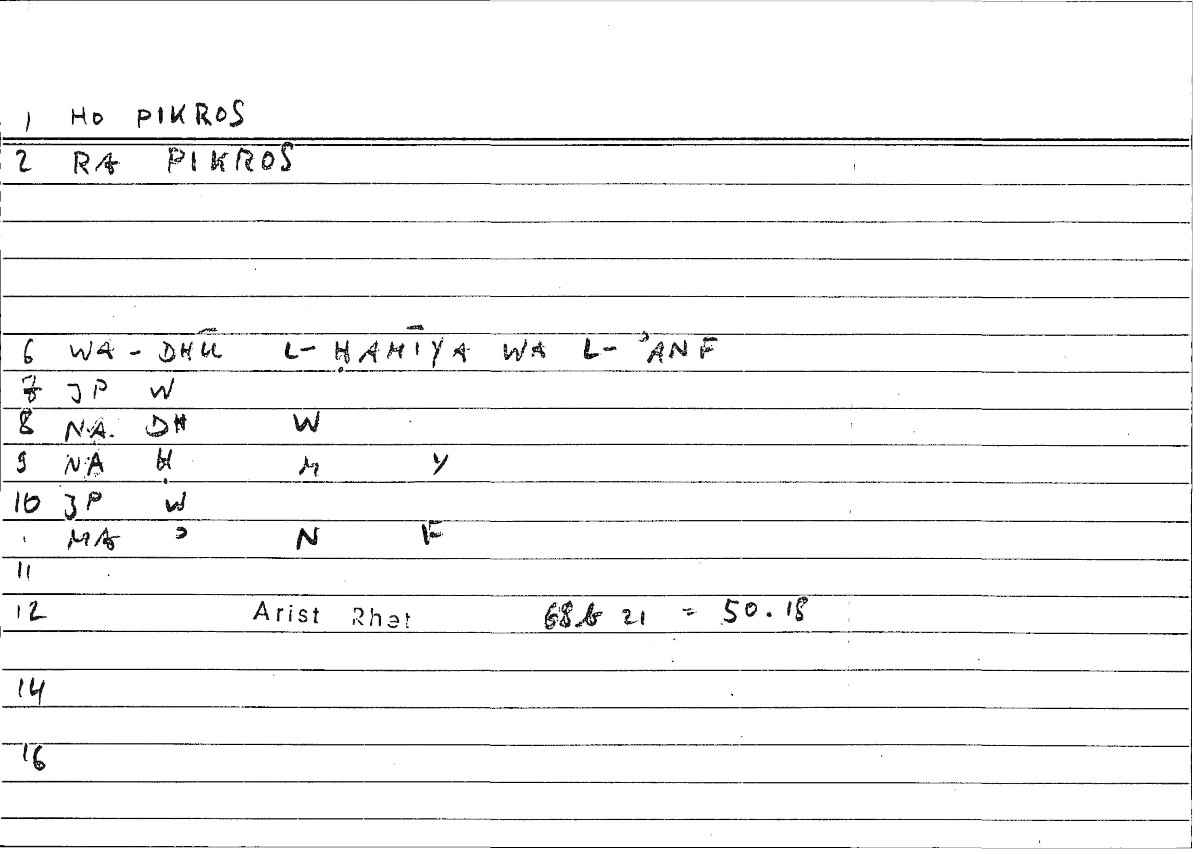 1 HO PIKROS
2 RA PIKROS
6 WA-DHŪ L-ḤAMĪYA WA L-ʾANF
7 JP W
8 NA. DH W
9 NA Ḥ M Y
10 JP W
MA ʾ N F
11
12 Arist Rhet 68b 21 = 50.18
14
16